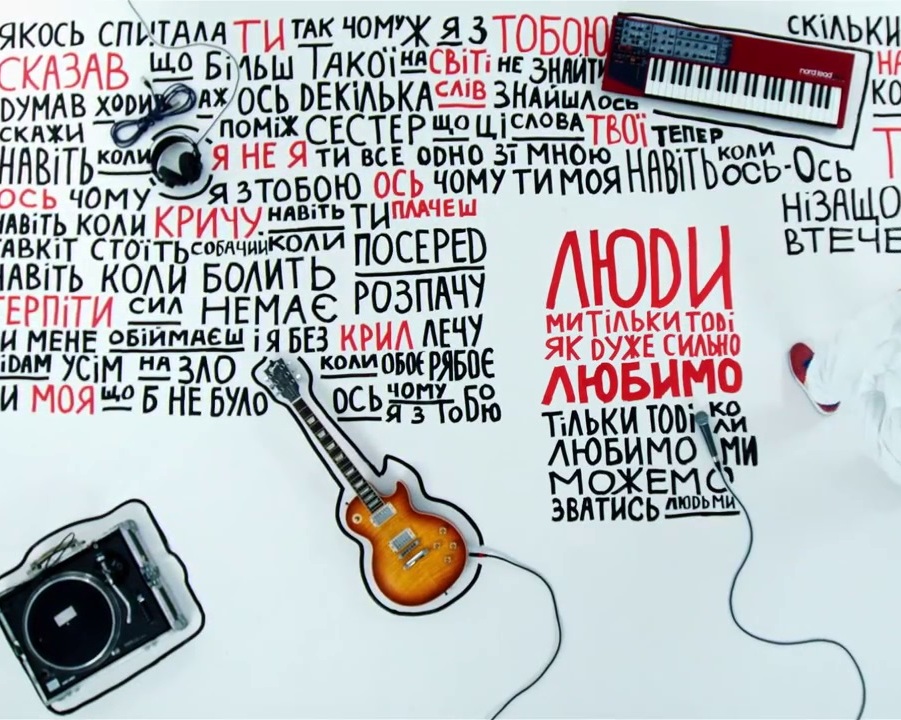 ЯКОСЬ СПИТАЛА ТИ ТАК ЧОМУ Ж Я З ТОБОЮ
СКАЗАВ ЩО БІЛЬШ ТАКОЇ НА СВІТІ НЕ ЗНАЙТИ
DУМАВ ХОDИВ АЖ ОСЬ DЕКІЛЬКА СЛІВ ЗНАЙШЛОСЬ
СКАЖИ ПОМІЖ СЕСТЕР ЩО ЦІ СЛОВА ТВОЇ ТЕПЕР
НАВІТЬ КОЛИ Я НЕ Я ТИ ВСЕ ОDНО ЗІ МНОЮ НАВІТЬ КОЛИ ОСЬ-ОСЬ
ОСЬ ЧОМУ Я З ТОБОЮ ОСЬ ЧОМУ ТИ МОЯ
НАВІТЬ КОЛИ КРИЧУ НАВІТЬ ТИ ПЛАЧЕШ
СТОЇТЬ СОБАЧИЙ КОЛИ ПОСЕРЕD
НАВІТЬ КОЛИ БОЛИТЬ РОЗПАЧУ
ТЕРПІТИ СИЛ НЕМАЄ
И МЕНЕ ОБІЙМАЄШ І Я БЕЗ КРИЛ ЛЕЧУ
УСІМ НА ЗЛО КОЛИ ОБОЄ РЯБОЄ
И МОЯ ЩО Б НЕ БУЛО ОСЬ ЧОМУ Я З ТОБОЮ
ЛЮDИ
МИ ТІЛЬКИ ТОDІ
ЯК DУЖЕ СИЛЬНО
ЛЮБИМО
ТІЛЬКИ ТОDІ КОЛИ
ЛЮБИМО МИ
МОЖЕМО
ЗВАТИСЬ ЛЮDЬМИ
СКІЛЬКИ
НА
КО
НІЗАЩО
ВТЕЧЕ
nord lead